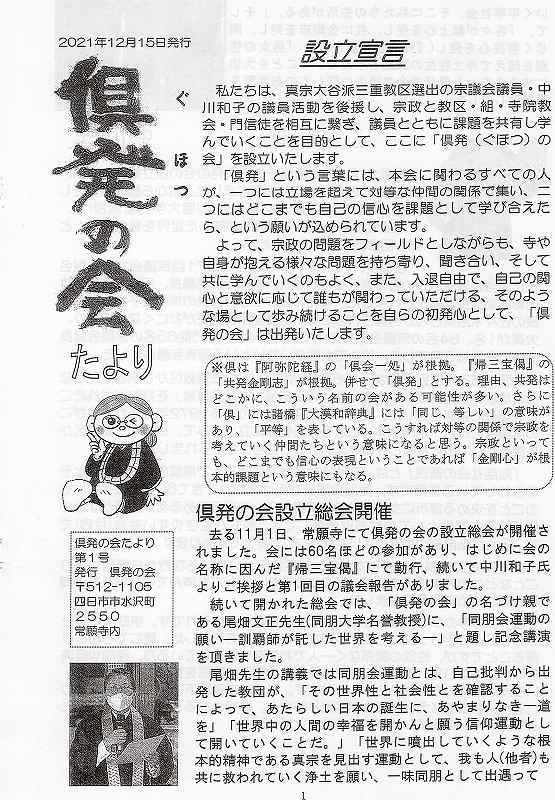 2021年12月15日発行
倶発の会
ぐほつ
たより
倶発の会たより
第1号
発行　倶発の会
〒512-1105
四日市市水沢町
2550
常願寺内
設立宣言
私たちは、真宗大谷派三重教区選出の宗議会議員・中
川和子の議員活動を後援し、宗政と教区・組・寺院教
会・門信徒を相互に繋ぎ、議員とともに課題を共有し学
んでいくことを目的として、ここに「倶発（ぐほつ）の
会」を設立いたします。
「倶発」という言葉には、本会に関わるすべての人
が、一つには立場を超えて対等な仲間の関係で集い、二
つにはどこまでも自己の信心を課題として学び合えた
ら、という願いが込められています。
よって、宗政の問題をフィールドとしながらも、寺や
自身が抱える様々な問題を持ち寄り、聞き合い、そして
共に学んでいくのもよく、また、入退自由で、自己の関
心と意欲に応じて誰もが関わっていただける、そのよう
な場として歩み続けることを自らの初発心として、「倶
発の会」は出発いたします。
※倶は『阿弥陀経』の「倶会一処」が根拠。『帰三宝偈』の
「共発金剛志」が根拠。併せて「倶発」とする。理由、共発は
どこかに、こういう名前の会がある可能性が多い。さらに
「倶」には諸橋『大漢和辞典』には「同じ、等しい」の意味が
あり、「平等」を表している。こうすれば対等の関係で宗政を
考えていく仲間たちという意味になると思う。宗政といって
も、どこまでも信心の表現ということであれば「金剛心」が根
本的課題という意味にもなる。
倶発の会設立総会開催
去る11月1日、常願寺にて倶発の会の設立総会が開催さ
れました。会には60名ほどの参加があり、はじめに会の
名称に因んだ『帰三宝偈』にて勤行、続いて中川和子氏
よりご挨拶と第1回目の議会報告がありました。
続いて開かれた総会では、「倶発の会」の名づけ親で
ある尾畑文正先生(同朋大学名誉教授)に、「同朋会運動の
願い―訓覇師が託した世界を考える―」と題し記念講演
を頂きました。
尾畑先生の講義では同朋会運動とは、自己批判から出
発した教団が、「その世界性と社会性とを確認すること
によって、あたらしい日本の誕生に、あやまりなき一道
を」「世界中の人間の幸福を開かんと願う信仰運動とし
て開いていくことだ。」「世界に噴出していくような根
本的精神である真宗を見出す運動として、我も人(他者)も
共に救われていく浄土を願い、一味同朋として出遇って
1